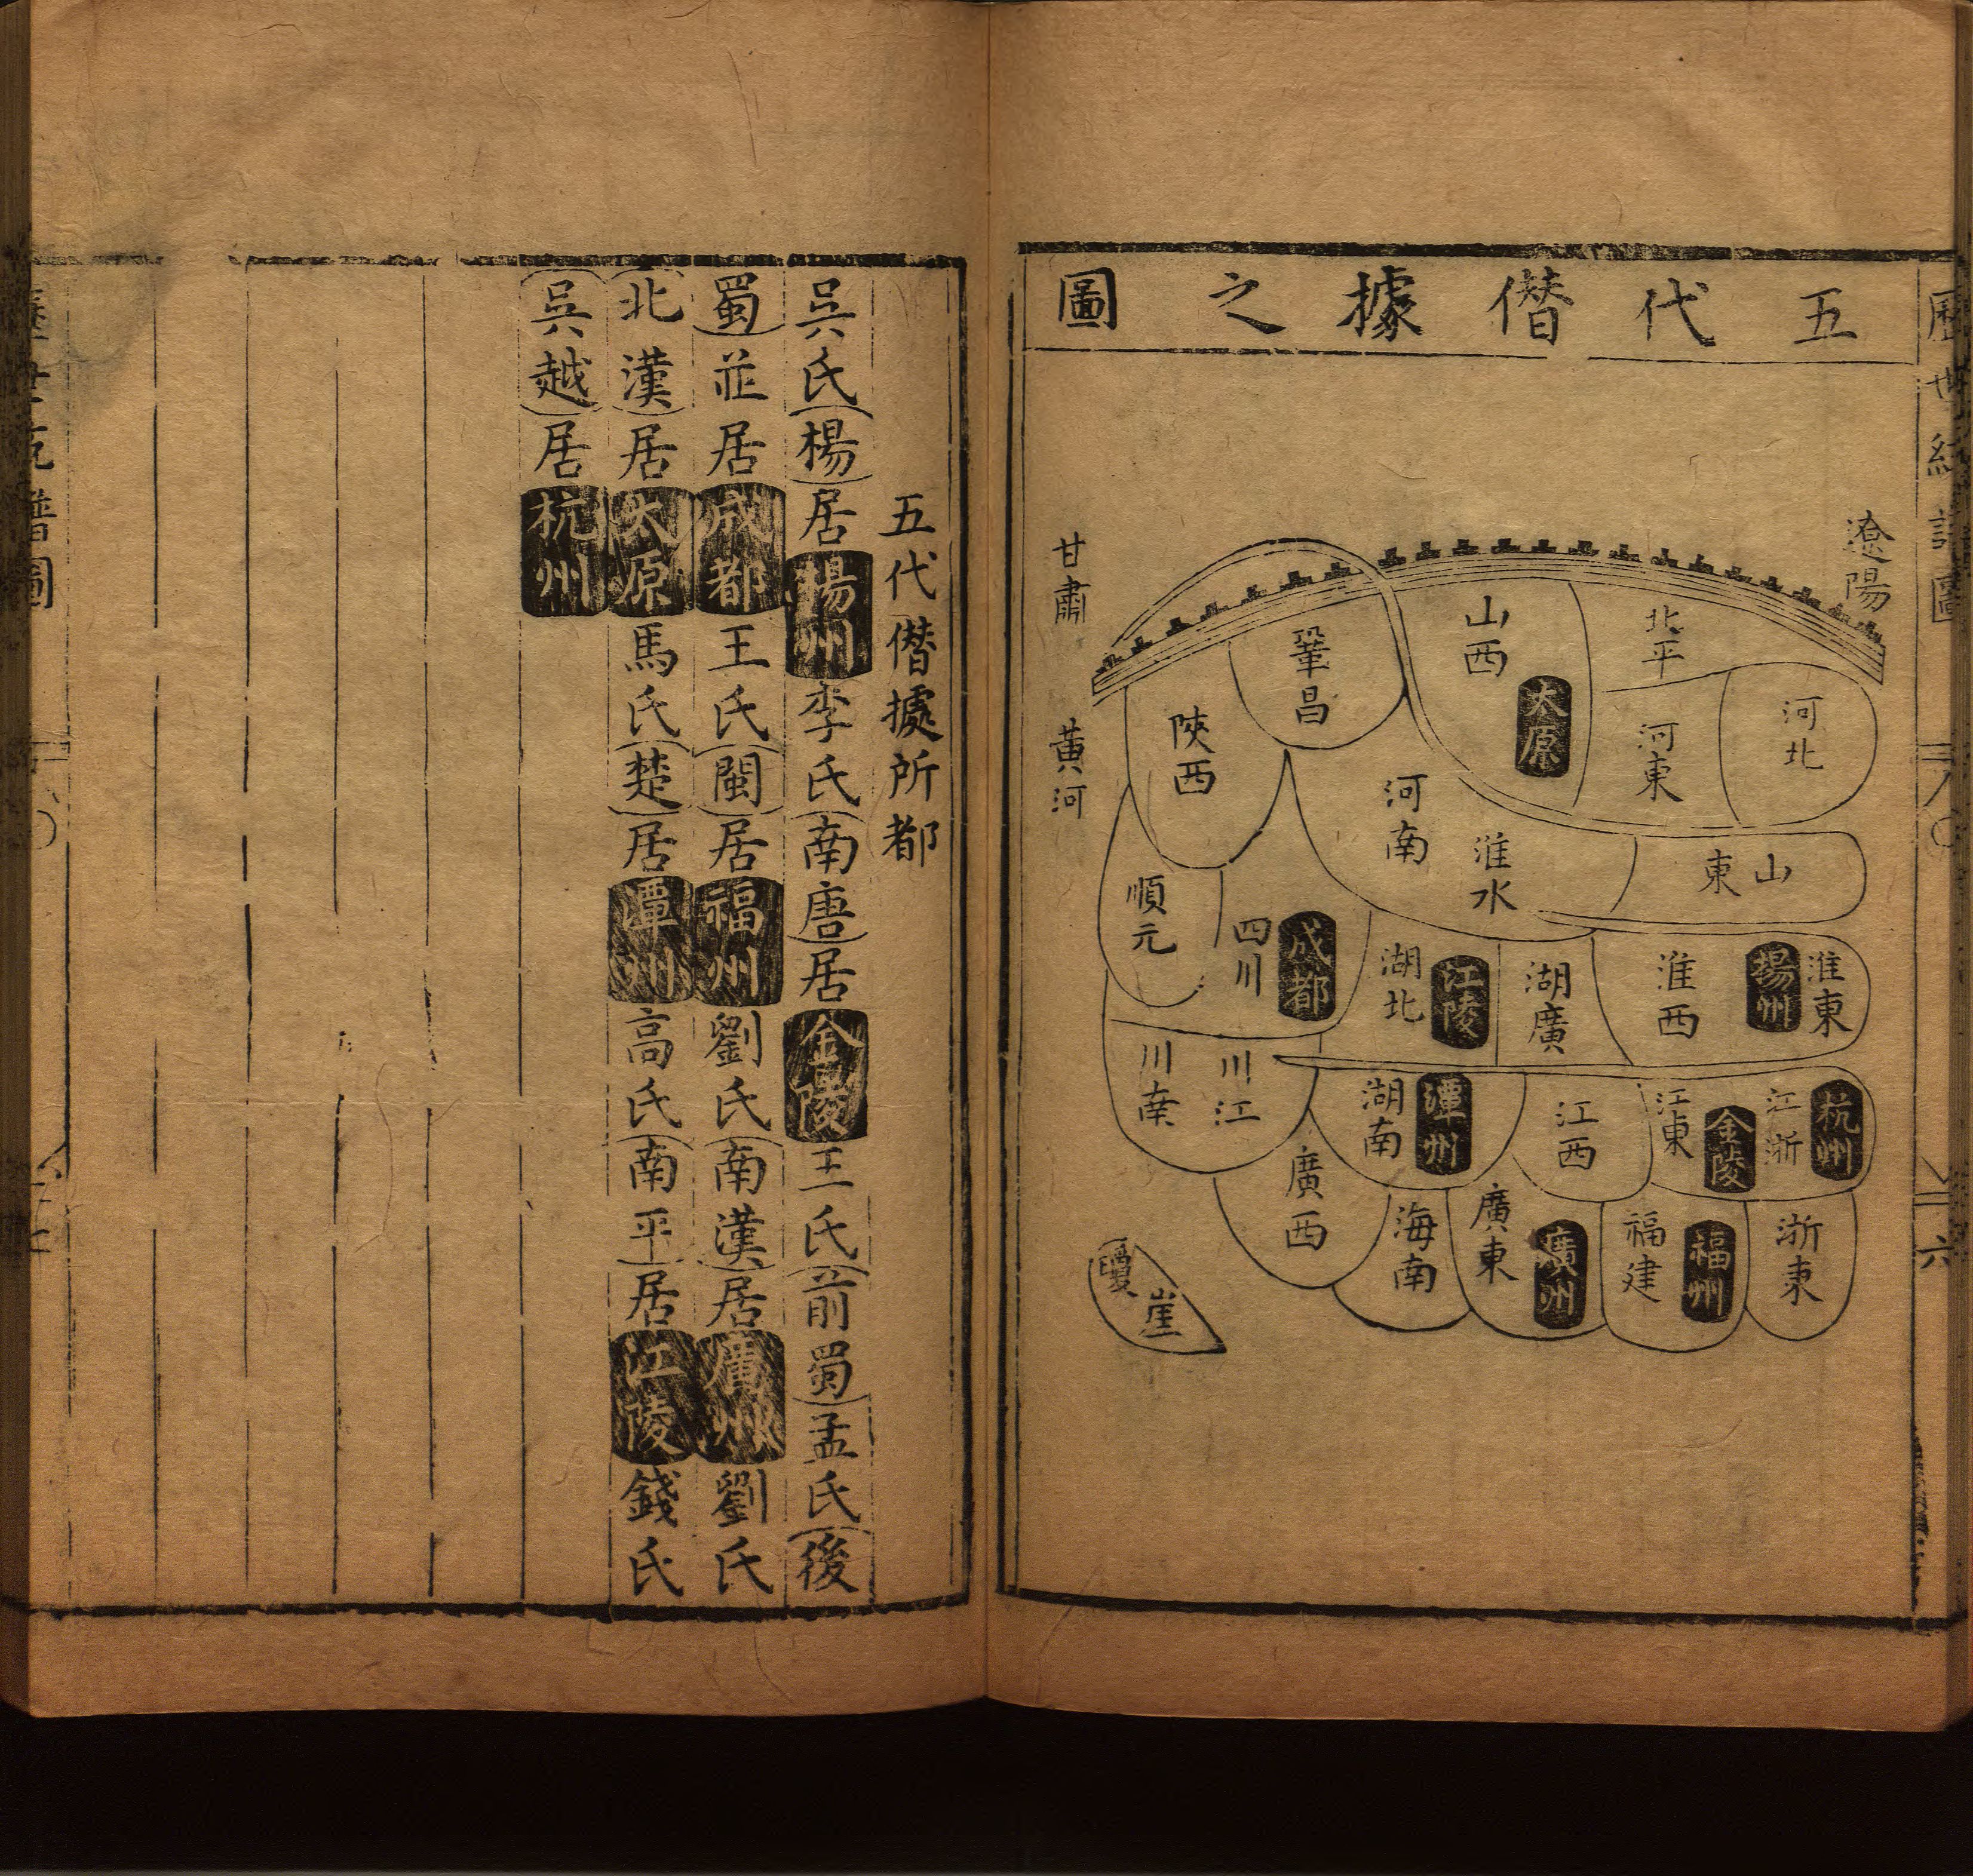 五代僭據之圖
遼陽
北平
河北
河東
山西
太原
鞏昌
陝西
甘肅
黃河
河南
淮水
山東
順元
四川
成都
湖北
江陵
湖廣
淮西
揚州
淮東
川南
川江
湖南
潭州
江西
江東
金陵
江浙
杭州
廣西
海南
廣東
廣州
福建
福州
浙東
瓊崖
六
五代僭據所都
吳氏楊居揚州李氏南唐居金陵王氏前蜀孟氏後
蜀並居成都王氏閩居福州劉氏南漢居廣州劉氏
北漢居太原馬氏楚居潭州高氏南平居江陵錢氏
吳越居杭州